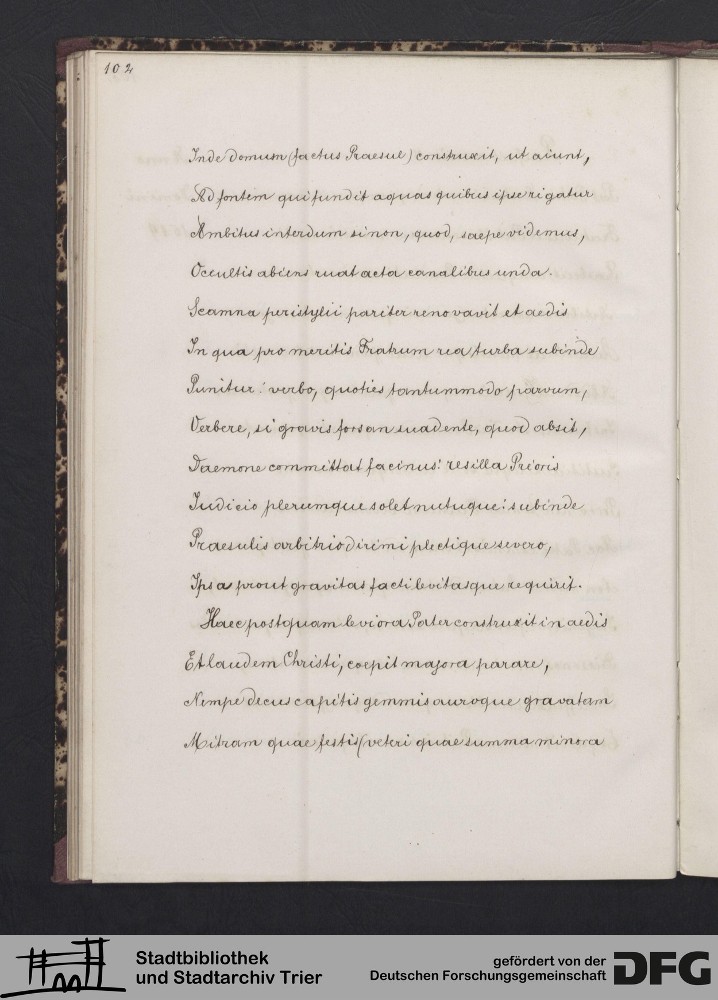 102
Inde domum (factus Praesul) construxit, ut aiunt,
Ad fontem qui fundit aquas quibus ipse rigatur
Ambitus interdum si non, quod, saepe videmus,
Occultis abiens ruat acta canalibus unda.
Scamna peristylii pariter renovavit et aedis
In qua pro meritis Fratrum rea turba subinde
Punitur: verbo, quoties tantummodo parvum,
Verbere, si gravis forsan suadente, quod absit,
Daemone committat facinus: res illa Prioris
Iudicio plerumque solet nutuque: subinde
Praesulis arbitrio dirimi plectique severo,
Ipsa prout gravitas facti levitasque requirit.
Haec postquam leviora Pater construxit in aedis
Et laudem Christi, coepit majora parare,
Nempe decus capitis gemmis auroque gravatam
Mitram quae festis (veteri quae summa minora
Stadtbibliothek
und Stadtarchiv Trier
gefördert von der
Deutschen Forschungsgemeinschaft
DFG